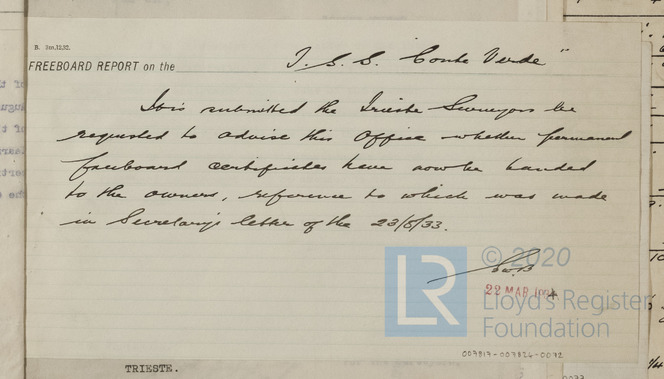 R. 3m,12,32.
FREEBOARD REPORT on the T. S. S. "Conte Verde"
It is submitted the Trieste Surveyors be
requested to advise this Office whether permanent
freeboard certificates have now been handed
to the owners, reference to which was made
in Secretary's letter of the 23/8/33.
22 MAR 1934
© 2020
LR
Lloyd's Register
Foundation
003817-003824-0072
TRIESTE.
0073